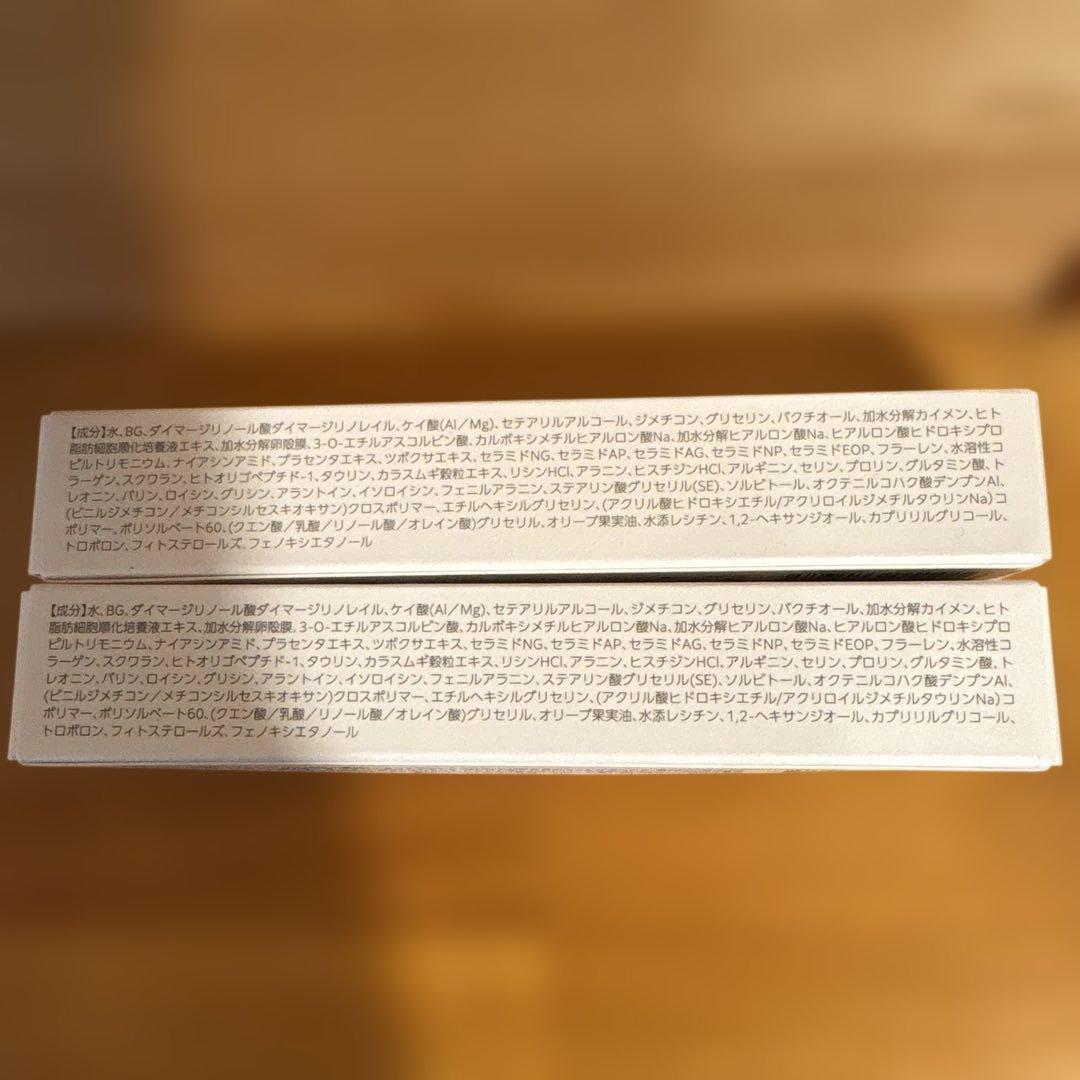 【成分】水、BG、ダイマージリノール酸ダイマージリノレイル、ケイ酸(Al/Mg)、セテアリルアルコール、ジメチコン、グリセリン、バクチオール、加水分解カイメン、ヒト
脂肪細胞順化培養液エキス、加水分解卵殻膜、3-O-エチルアスコルビン酸、カルボキシメチルヒアルロン酸Na、加水分解ヒアルロン酸Na、ヒアルロン酸ヒドロキシプロ
ピルトリモニウム、ナイアシンアミド、プラセンタエキス、ツボクサエキス、セラミドNG、セラミドAP、セラミドAG、セラミドNP、セラミドEOP、フラーレン、水溶性コ
ラーゲン、スクワラン、ヒトオリゴペプチド-1、タウリン、カラスムギ穀粒エキス、リシンHCl、アラニン、ヒスチジンHCl、アルギニン、セリン、プロリン、グルタミン酸、ト
レオニン、バリン、ロイシン、グリシン、アラントイン、イソロイシン、フェニルアラニン、ステアリン酸グリセリル(SE)、ソルビトール、オクテニルコハク酸デンプンAl、
(ビニルジメチコン/メチコンシルセスキオキサン)クロスポリマー、エチルヘキシルグリセリン、(アクリル酸ヒドロキシエチル/アクリロイルジメチルタウリンNa)コ
ポリマー、ポリソルベート60、(クエン酸/乳酸/リノール酸/オレイン酸)グリセリル、オリーブ果実油、水添レシチン、1,2-ヘキサンジオール、カプリリルグリコール、
トロポロン、フィトステロールズ、フェノキシエタノール
【成分】水、BG、ダイマージリノール酸ダイマージリノレイル、ケイ酸(Al/Mg)、セテアリルアルコール、ジメチコン、グリセリン、バクチオール、加水分解カイメン、ヒト
脂肪細胞順化培養液エキス、加水分解卵殻膜、3-O-エチルアスコルビン酸、カルボキシメチルヒアルロン酸Na、加水分解ヒアルロン酸Na、ヒアルロン酸ヒドロキシプロ
ピルトリモニウム、ナイアシンアミド、プラセンタエキス、ツボクサエキス、セラミドNG、セラミドAP、セラミドAG、セラミドNP、セラミドEOP、フラーレン、水溶性コ
ラーゲン、スクワラン、ヒトオリゴペプチド-1、タウリン、カラスムギ穀粒エキス、リシンHCl、アラニン、ヒスチジンHCl、アルギニン、セリン、プロリン、グルタミン酸、ト
レオニン、バリン、ロイシン、グリシン、アラントイン、イソロイシン、フェニルアラニン、ステアリン酸グリセリル(SE)、ソルビトール、オクテニルコハク酸デンプンAl、
(ビニルジメチコン/メチコンシルセスキオキサン)クロスポリマー、エチルヘキシルグリセリン、(アクリル酸ヒドロキシエチル/アクリロイルジメチルタウリンNa)コ
ポリマー、ポリソルベート60、(クエン酸/乳酸/リノール酸/オレイン酸)グリセリル、オリーブ果実油、水添レシチン、1,2-ヘキサンジオール、カプリリルグリコール、
トロポロン、フィトステロールズ、フェノキシエタノール